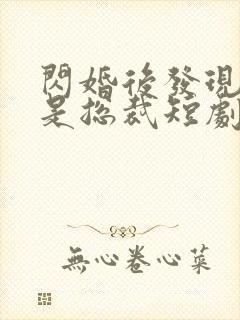 閃婚後發現
是總裁短劇
無心卷心菜